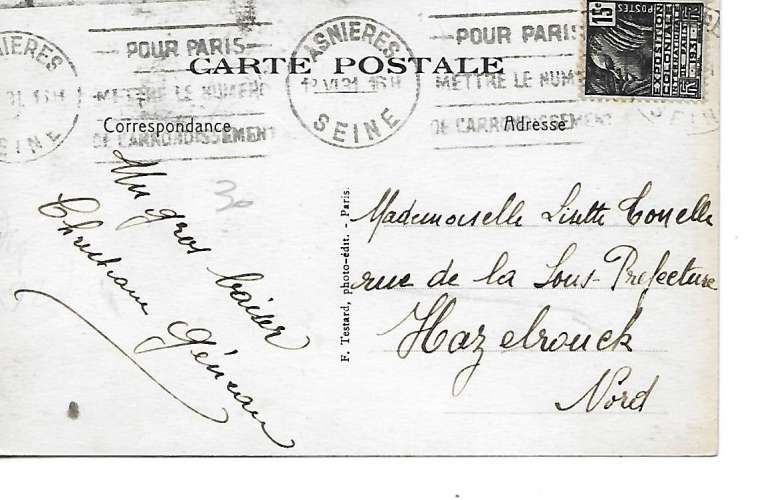 ASNIERES
SEINE
POUR PARIS
METTRE LE NUMERO
DE L'ARRONDISSEMENT
ASNIERES
12 VI 31 16H
SEINE
POUR PARIS
METTRE LE NUMERO
DE L'ARRONDISSEMENT
15c POSTES
EXPOSITION
COLONIALE
CARTE POSTALE
Correspondance
Adresse
30
Un gros baiser
Christiane
F. Testard, photo-édit. - Paris.
Mademoiselle Lisette
rue de la Sous-Prefecture
Hazebrouck
Nord